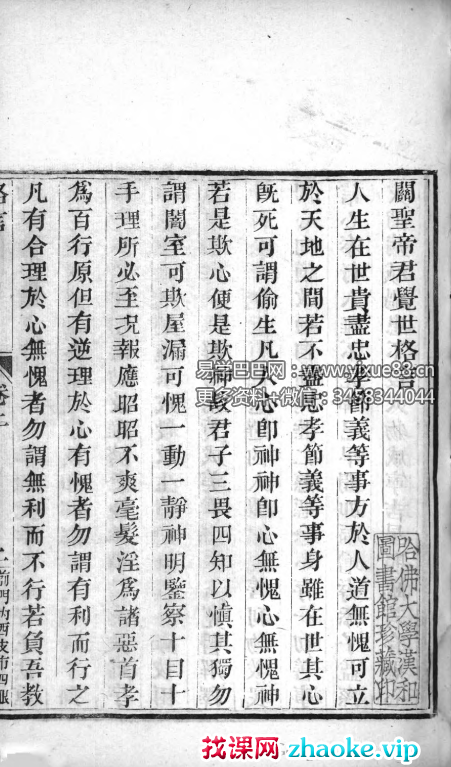 關聖帝君覺世格言
人生在世貴盡忠孝節義等事方於人道無愧可立
於天地之間若不盡忠孝節義等事身雖在世其心
旣死可謂偷生凡人心卽神神卽心無愧心無愧神
若是欺心便是欺神故君子三畏四知以慎其獨勿
謂闇室可欺屋漏可愧一動一靜神明鑒察十目十
手理所必至况報應昭昭不爽毫髮淫爲諸惡首孝
爲百行原但有逆理於心有愧者勿謂有利而行之
凡有合理於心無愧者勿謂無利而不行若負吾教
格言
卷二
前門內西皮市四眼
哈佛大學漢和
圖書館珍藏印
易学巴巴网 www.yixue88.cn
更多资料+微信：3458344044
找课网 zhaoke.vip